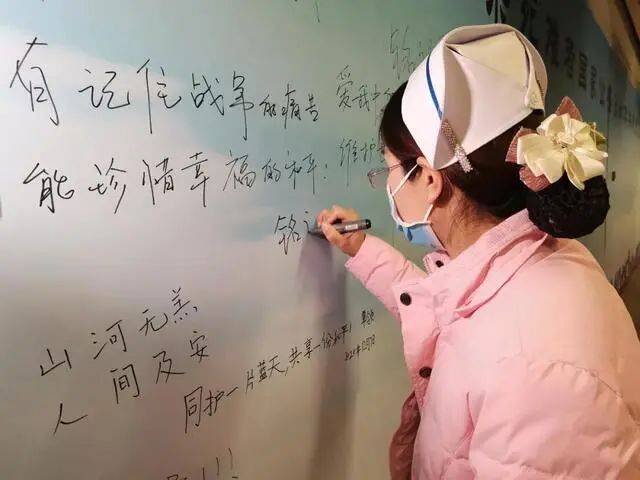 国家公
有记住战争和痛苦 爱我中
能珍惜幸福的和平: 维护
铭
山河无恙
人间及安
同护一片蓝天,共享一份和平!
!!!